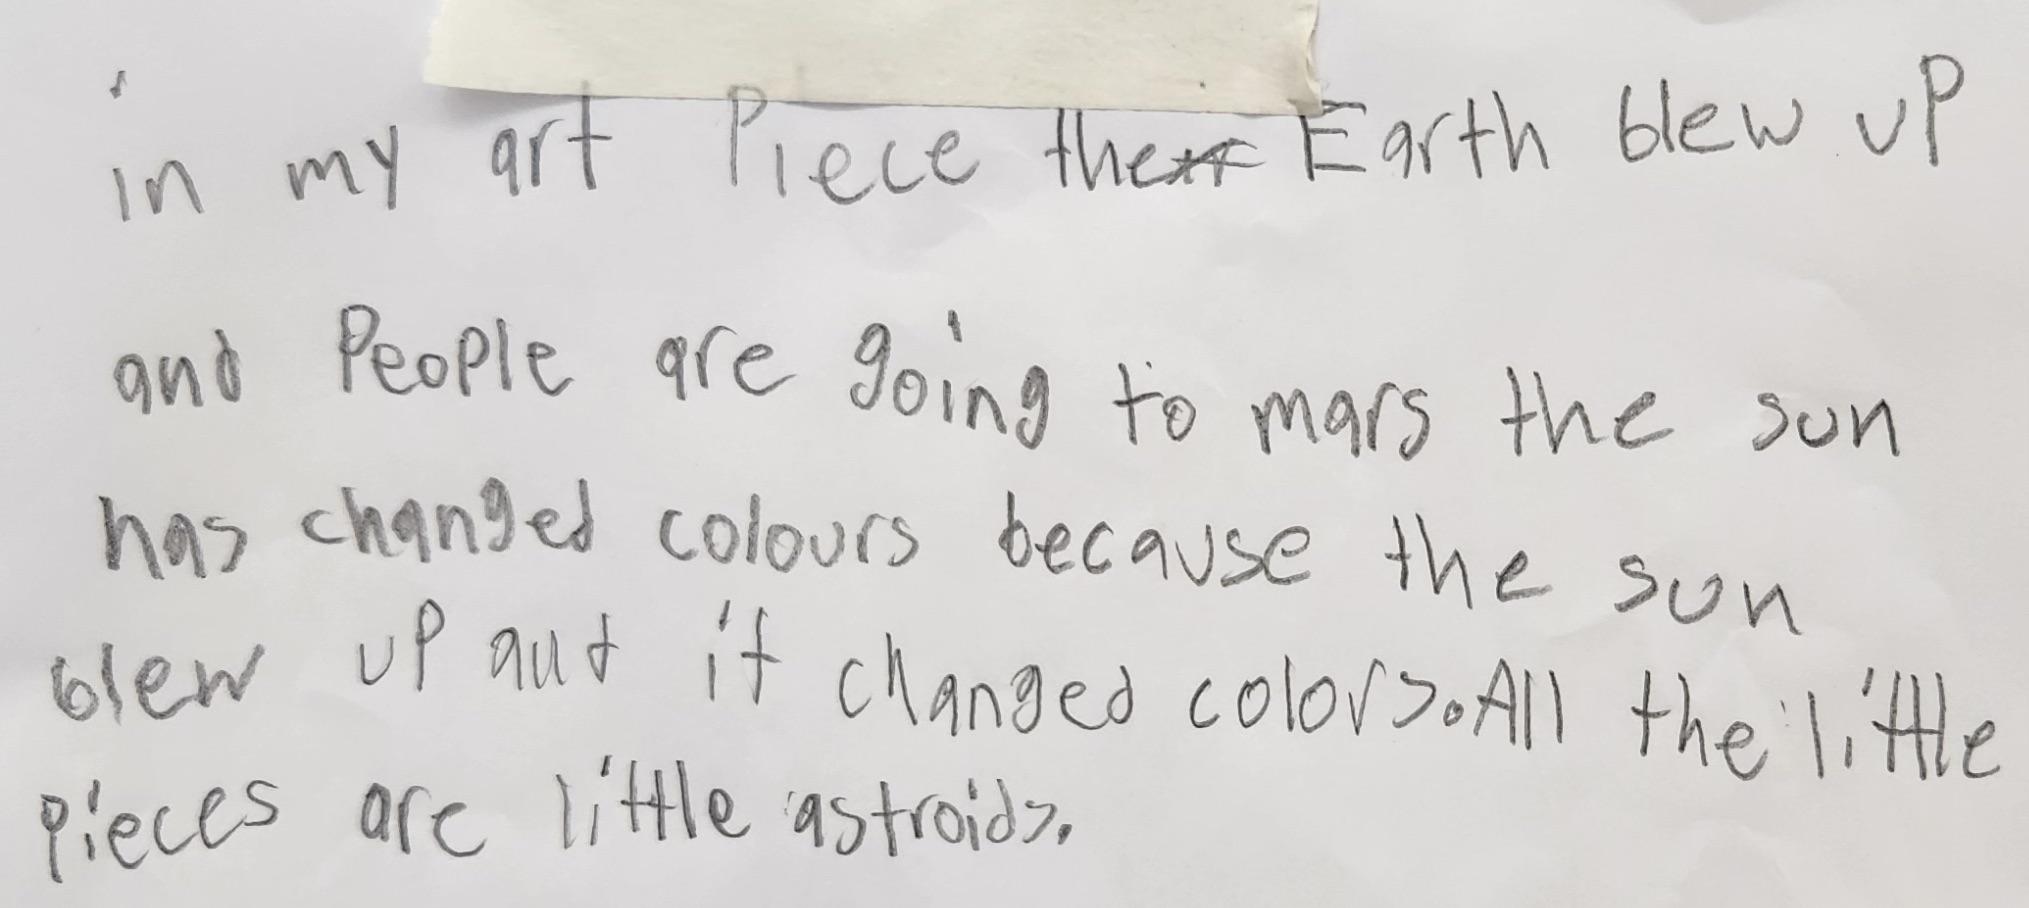 in my art Piece the Earth blew uP
and People are going to mars the sun
has changed colours because the sun
blew uP aut it changed colors. All the little
pieces are little astroids.